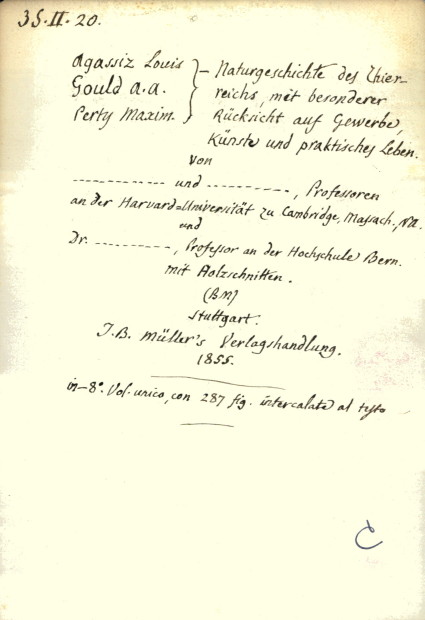 35.II.20.
Agassiz Louis
Gould A.A.
Perty Maxim.
} – Naturgeschichte des Thier-
reichs, mit besonderer
Rücksicht auf Gewerbe,
Künste und praktisches Leben.
Von
------------ und ----------, Professoren
an der Harvard=Universität zu Cambridge, Massach., NA.
und
Dr. ----------, Professor an der Hochschule Bern.
mit Holzschnitten.
(BN)
Stuttgart.
J.B. Müller's Verlagshandlung.
1855.
in-8°. Vol. unico, con 287 fig. intercalate al testo
C